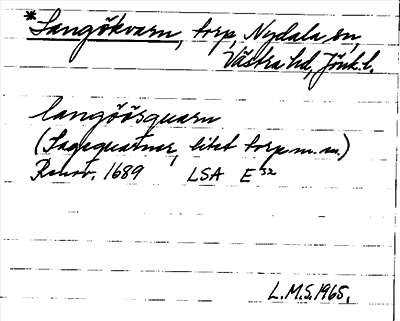 *Langökvarn, torp, Nydala sn,
Västra hd, Jönk. l.
langöösquarn
(Sagequarner, litet torp m. m.)
Renov. 1689 LSA E 32
L.M.S. 1965.